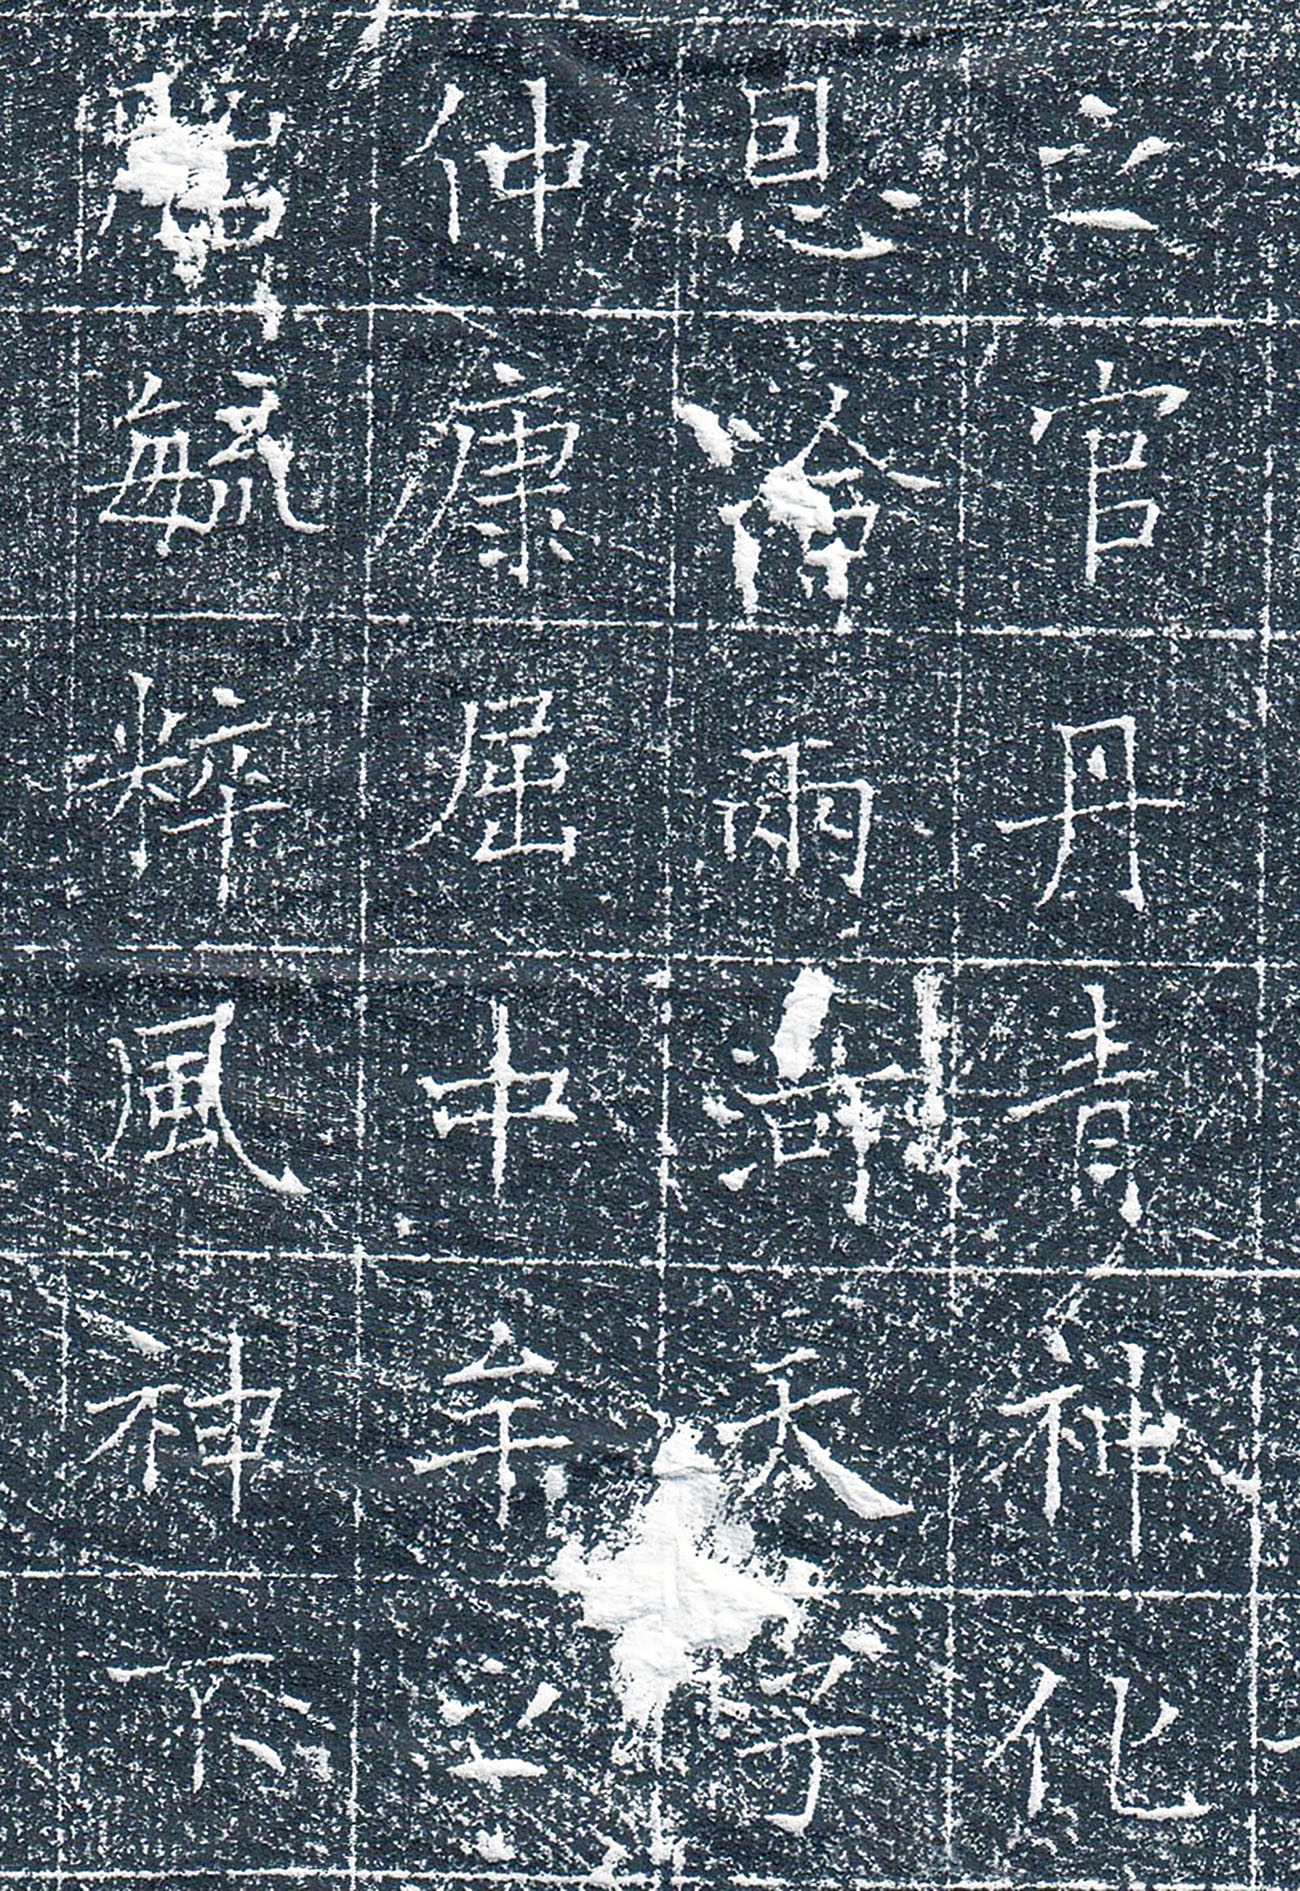 之官丹青神化
恩洽雨澍天子
仲康屈中宰之
毓粹風神不